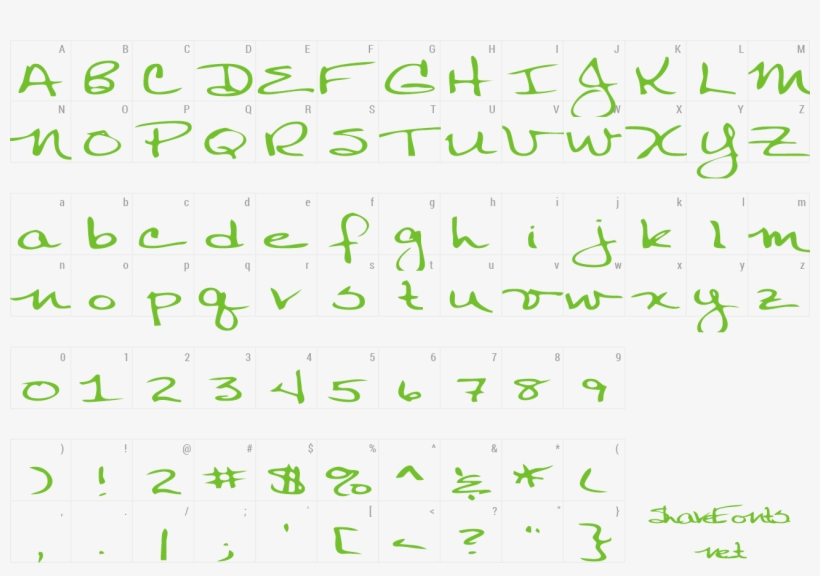 A B C D E F G H I J K L M
A B C D E F G H I J K L M
N O P Q R S T U V W X Y Z
N O P Q R S T U V W X Y Z
a b c d e f g h i j k l m
a b c d e f g h i j k l m
n o p q r s t u v w x y z
n o p q r s t u v w x y z
0 1 2 3 4 5 6 7 8 9
0 1 2 3 4 5 6 7 8 9
) ! @ # $ % ^ & * (
) ! 2 # $ % ^ & * (
, . / ; ' [ < ? " }
, . | ; ' [ < ? ¨ }
ShareFonts
net